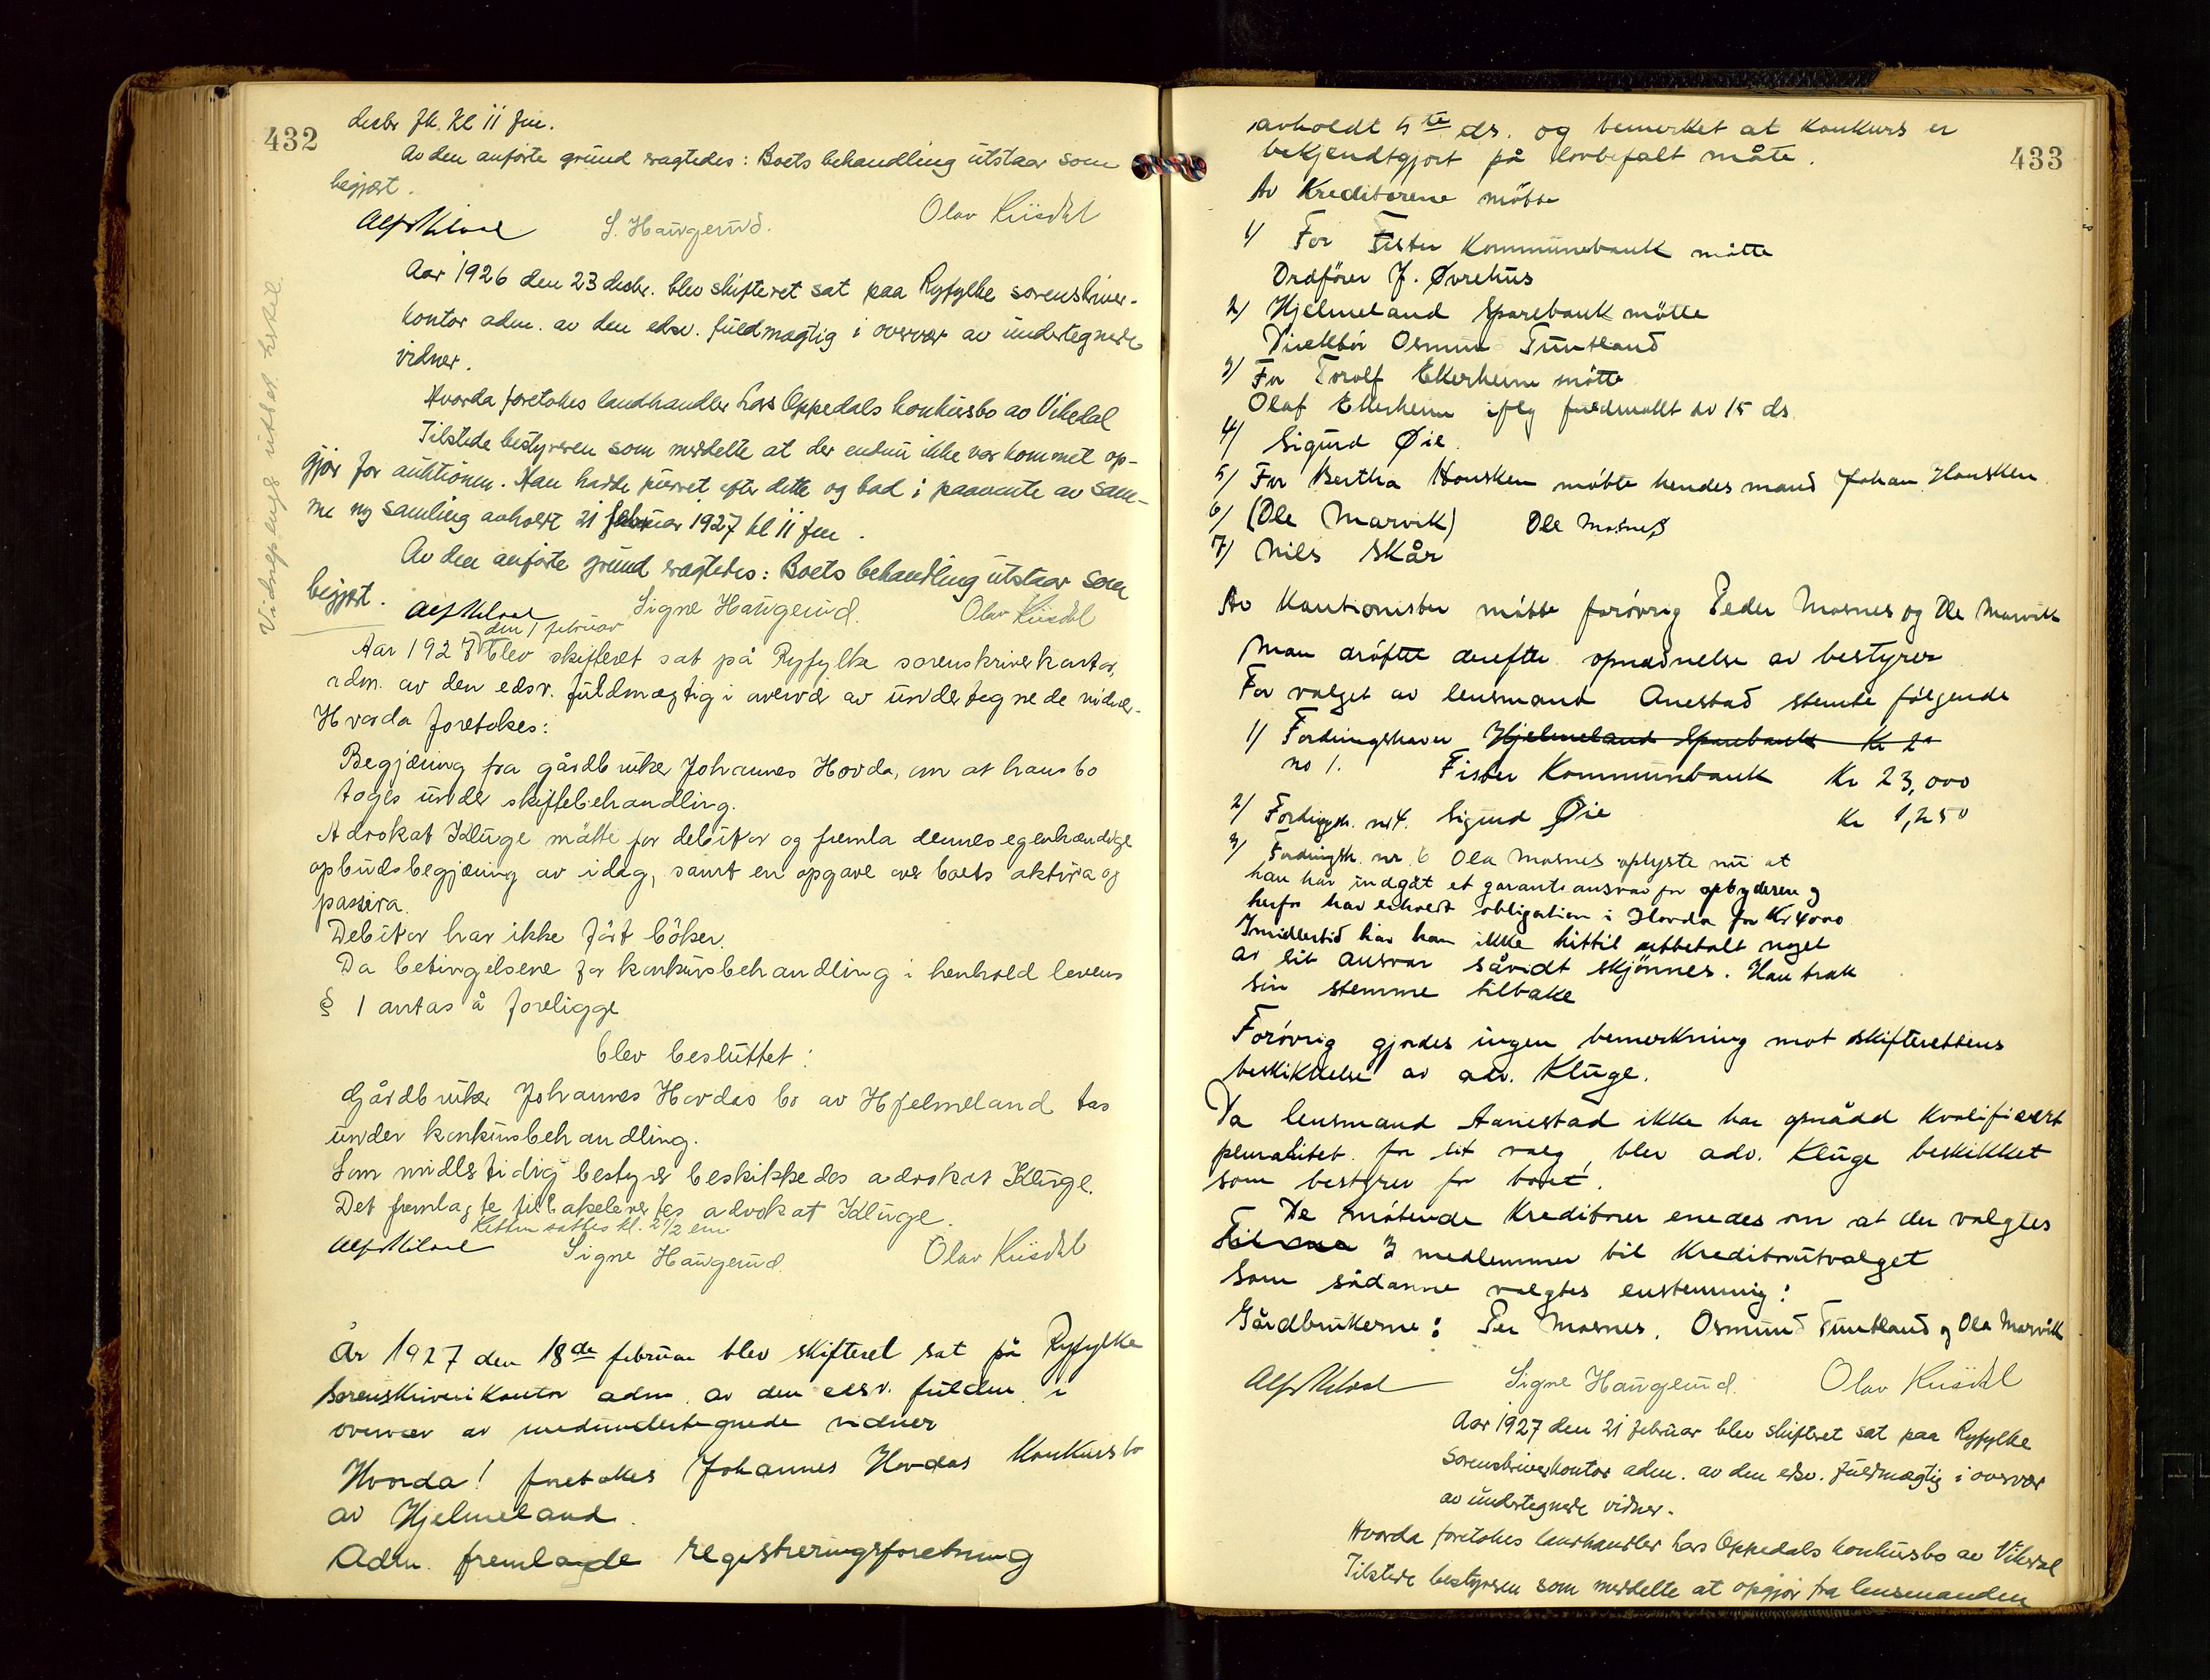 432
desbr ft. kl 11 fm.
Av den anførte grund vagtedes: Boets behandling utstaar som
begjært.
Alf Milval S. Haugerud. Olav Riisdal
Vidnepenge utbet. hertil.
Aar 1926 den 23 desbr. blev skifteret sat paa Ryfylke sorenskriver-
kontor adm. av den edsv. fuldmægtig i overvær av undertegnede
vidner.
Hvorda foretokes landhandler Lars Oppedals konkursbo av Vikedal
Tilstede bestyreren som meddelte at der endnu ikke var kommet op-
gjør for auktionen. Han hadde purret efter dette og bad i paavente av sam-
me ny samling avholdt 21 februar 1927 kl 11 fm.
Av den anførte grund vagtedes: Boets behandling utstaar som
begjært.
Alf Milval Signe Haugerud. Olav Riisdal
den 1 februar
Aar 1927 blev skifteret sat på Ryfylke sorenskriverkontor,
adm. av den edsv. fuldmægtig i overvær av undertegnede vidner.
Hvorda foretokes:
Begjæring fra gårdbruker Johannes Hovda, om at hans bo
toges under skiftebehandling.
Advokat Kluge møtte for debitor og fremla dennes egenhændige
opbudsbegjæring av idag, samt en opgave over boets aktiva og
passiva.
Debitor har ikke ført bøker.
Da betingelsene for konkursbehandling i henhold lovens
§ 1 antas å foreligge
blev besluttet:
Gårdbruker Johannes Hovdas bo av Hjelmeland tas
under konkursbehandling.
Som midlertidig bestyrer beskikkedes advokat Kluge.
Det fremlagte tilbakelevertes advokat Kluge.
Retten sattes kl. 2 1/2 em
Alf Milval Signe Haugerud. Olav Riisdal
År 1927 den 18de februar blev skifteret sat på Ryfylke
Sorenskriverikontor adm. av den edsv. fuldm. i
overvær av medundertegnede vidner
Hvorda! foretokes Johannes Hovdas Konkursbo
av Hjelmeland.
Adm. fremlagde registreringsforretning
433
avholdt 5te ds. og bemerket at konkurs er
bekjendtgjort på lovbefalt måte.
Av Kreditorene møtte
1/ For Fister Kommunebank møtte
Ordfører J. Øvrehus
2/ Hjelmeland Sparebank møtte
Direktør Osmun Tuntland
3/ For Torolf Ekerheim møtte
Olaf Ekerheim iflg fuldmakt av 15 ds.
4/ Sigurd Øie.
5/ For Bertha Housken møtte hendes mand Johan Housken
6/ (Ole Marvik) Ole Mosnes
7/ Nils Skår
Av Kautionister møtte forøvrig Peder Mosnes og Ole Marvik
Man drøftet derefter opnævnelse av bestyrer
For valget av lensmand Anestad stemte følgende
1/ Fordringshaver Hjelmeland Sparebank Kr 2
no 1. Fister Kommunebank Kr 23,000
2/ Fordrgsh. nr 4. Sigurd Øie Kr 1,250
3/ Fordringsh. nr. 6 Ola Mosnes oplyste nu at
han har indgåt et garantiansvar for opbyderen og
herfor har erholdt obligation i Hovda for Kr 4000
Imidlertid har han ikke hittil utbetalt noget
av sit ansvar såvidt skjønnes. Han trak
sin stemme tilbake
Forøvrig gjordes ingen bemerkning mot skifterettens
beskikkelse av adv. Kluge.
Da lensmand Aanestad ikke har opnådd kvalificert
pluralitet for sit valg, blev adv. Kluge beskikket
som bestyrer for boet.
De møtende Kreditorer enedes om at der valgtes
3 medlemmer til Kreditorutvalget
Som sådanne valgtes enstemmig:
Gårdbrukerne: Per Mosnes, Osmund Tuntland og Ole Marvik
Alf Milval Signe Haugerud. Olav Riisdal
Aar 1927 den 21 februar blev skifteret sat paa Ryfylke
Sorenskriverkontor adm. av den edsv. fuldmægtig i overvær
av undertegnede vidner.
Hvorda foretokes landhandler Lars Oppedals konkursbo av Vikedal
Tilstede bestyreren som meddelte at opgjør fra lensmanden